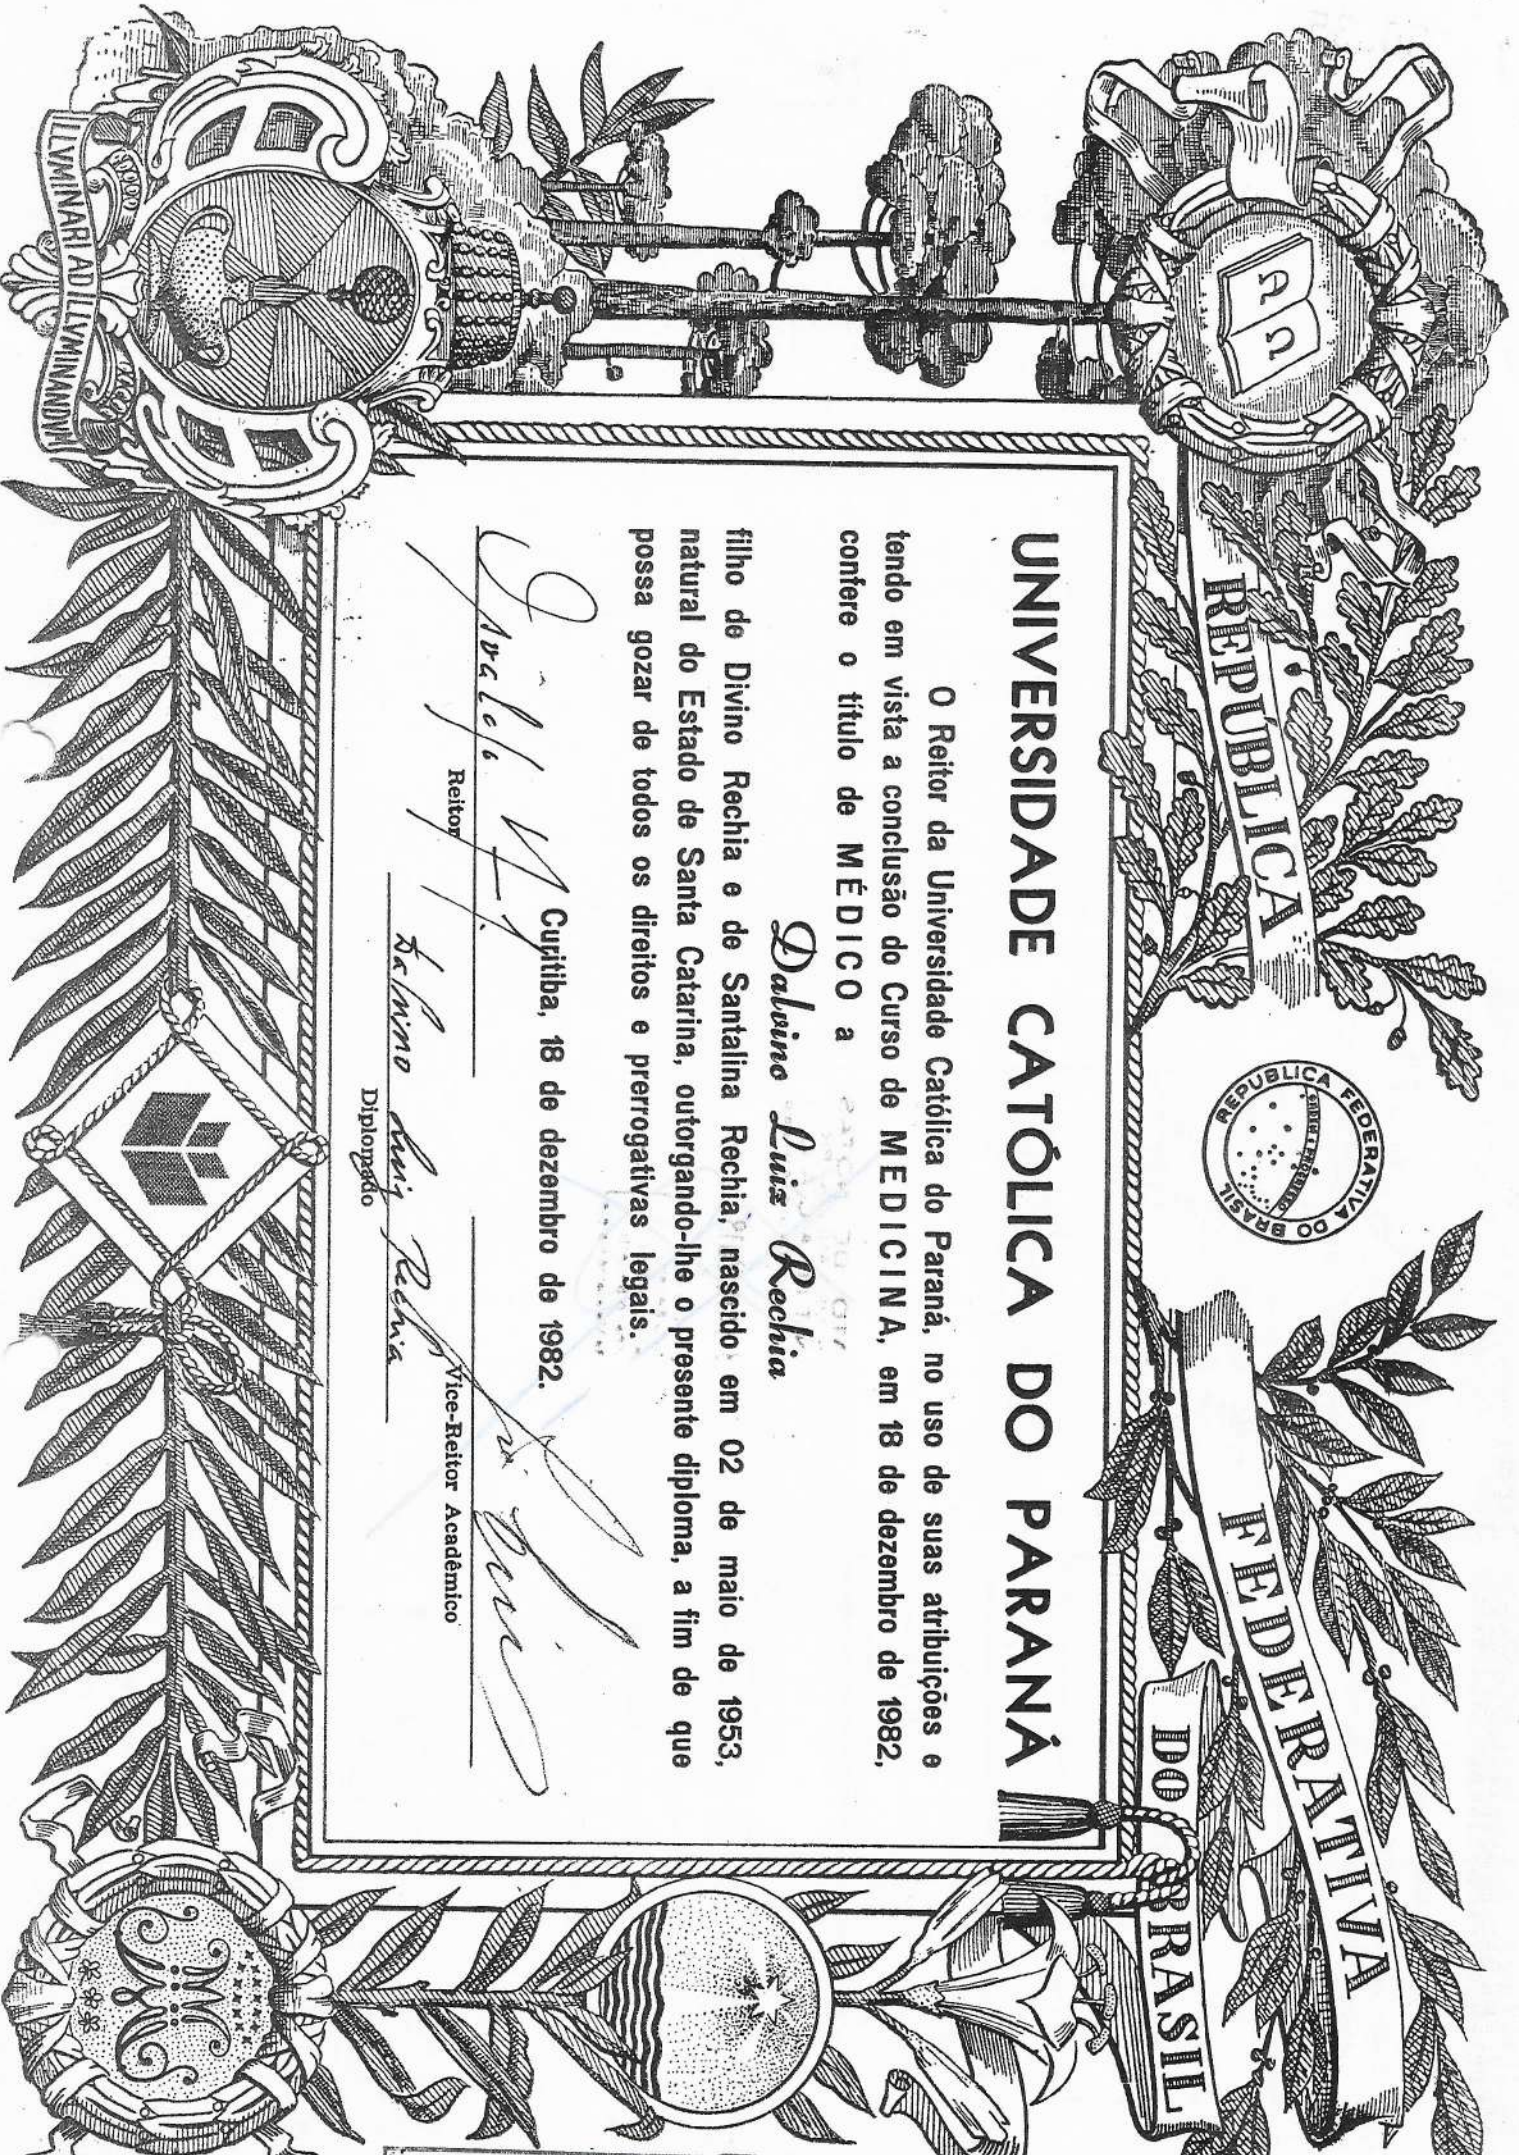 REPÚBLICA FEDERATIVA DO BRASIL
REPUBLICA FEDERATIVA DO BRASIL
ORDEM E PROGRESSO
UNIVERSIDADE CATÓLICA DO PARANÁ
O Reitor da Universidade Católica do Paraná, no uso de suas atribuições e
tendo em vista a conclusão do Curso de MEDICINA, em 18 de dezembro de 1982,
confere o título de MÉDICO a
Dalvino Luiz Rechia
filho de Divino Rechia e de Santalina Rechia, nascido em 02 de maio de 1953,
natural do Estado de Santa Catarina, outorgando-lhe o presente diploma, a fim de que
possa gozar de todos os direitos e prerrogativas legais.
Curitiba, 18 de dezembro de 1982.
Reitor
Vice-Reitor Acadêmico
Dalvino Luiz Rechia
Diplomado
ILLVMINARI AD ILLVMINANDVM